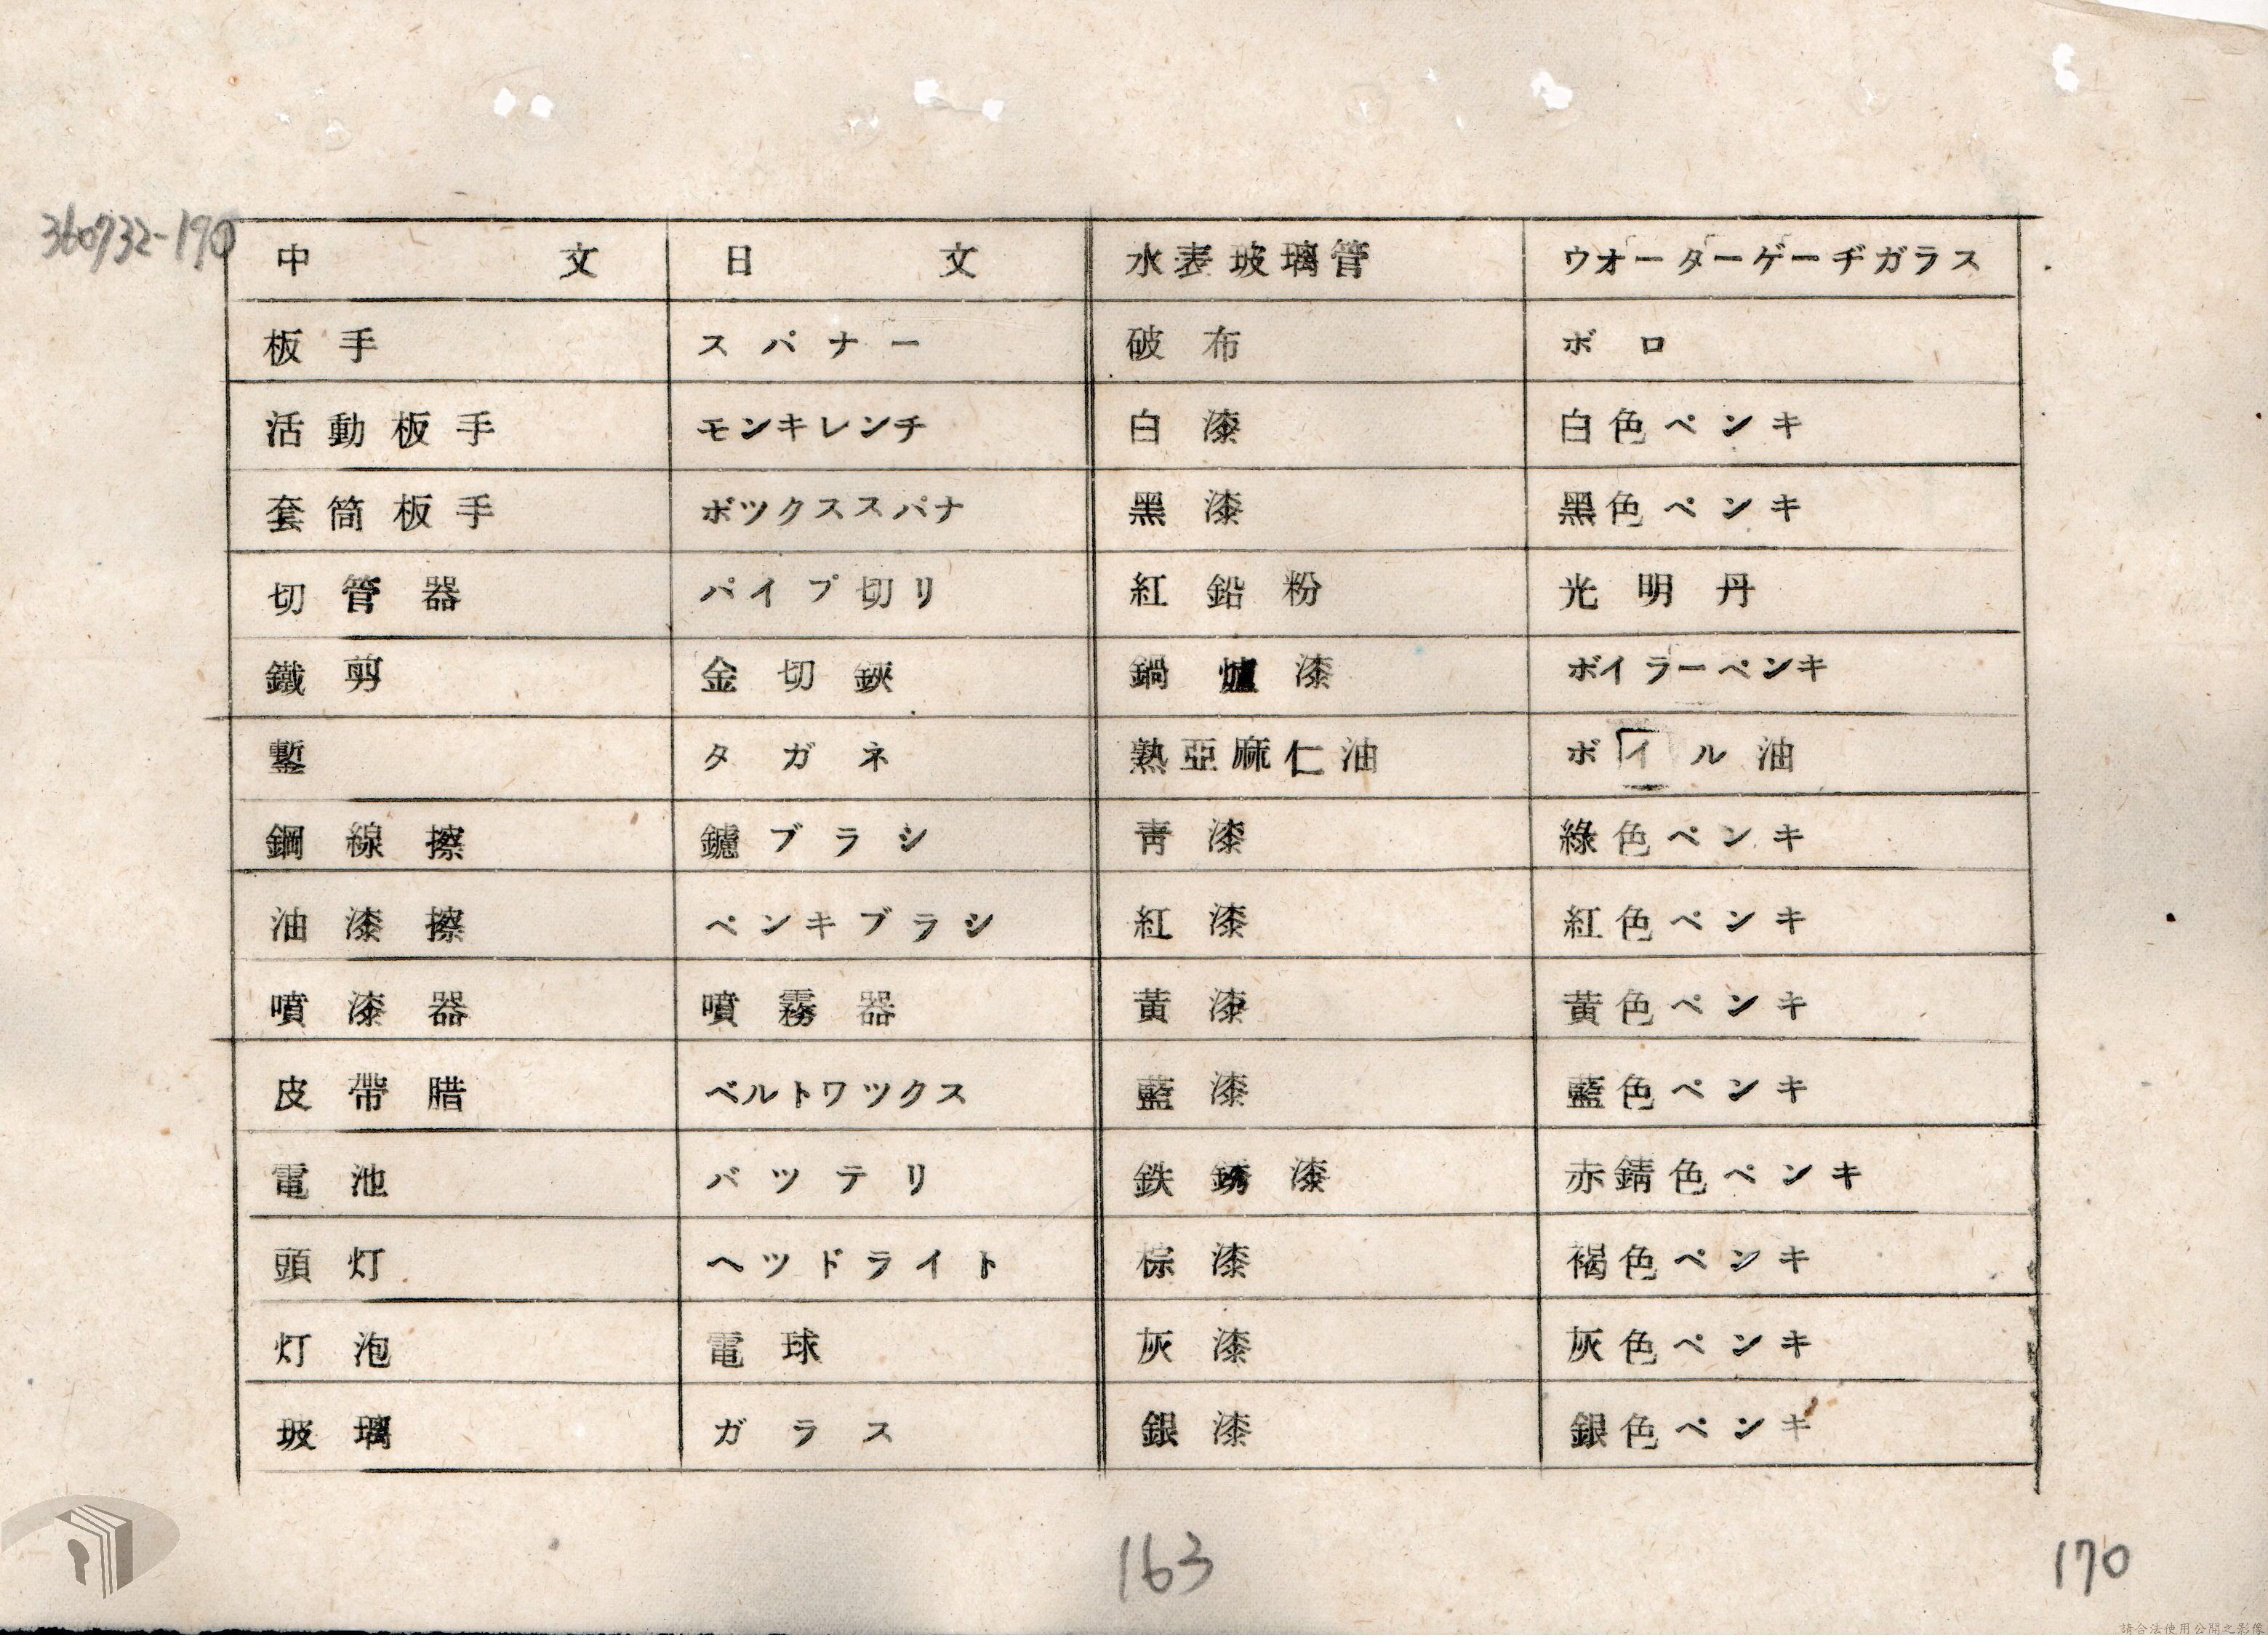 360732-190
中文 日文 水表玻璃管 ウオーターゲーヂガラス
板手 スパナー 破布 ボロ
活動板手 モンキレンチ 白漆 白色ペンキ
套筒板手 ボツクススパナ 黑漆 黑色ペンキ
切管器 パイプ切リ 紅鉛粉 光明丹
鐵剪 金切鋏 鍋爐漆 ボイラーペンキ
鏨 タガネ 熟亞麻仁油 ボイル油
鋼線擦 鑢ブラシ 靑漆 綠色ペンキ
油漆擦 ペンキブラシ 紅漆 紅色ペンキ
噴漆器 噴霧器 黃漆 黃色ペンキ
皮帶腊 ベルトワツクス 藍漆 藍色ペンキ
電池 バツテリ 鉄銹漆 赤錆色ペンキ
頭灯 ヘツドライト 棕漆 褐色ペンキ
灯泡 電球 灰漆 灰色ペンキ
玻璃 ガラス 銀漆 銀色ペンキ
163
170
請合法使用公開之影像